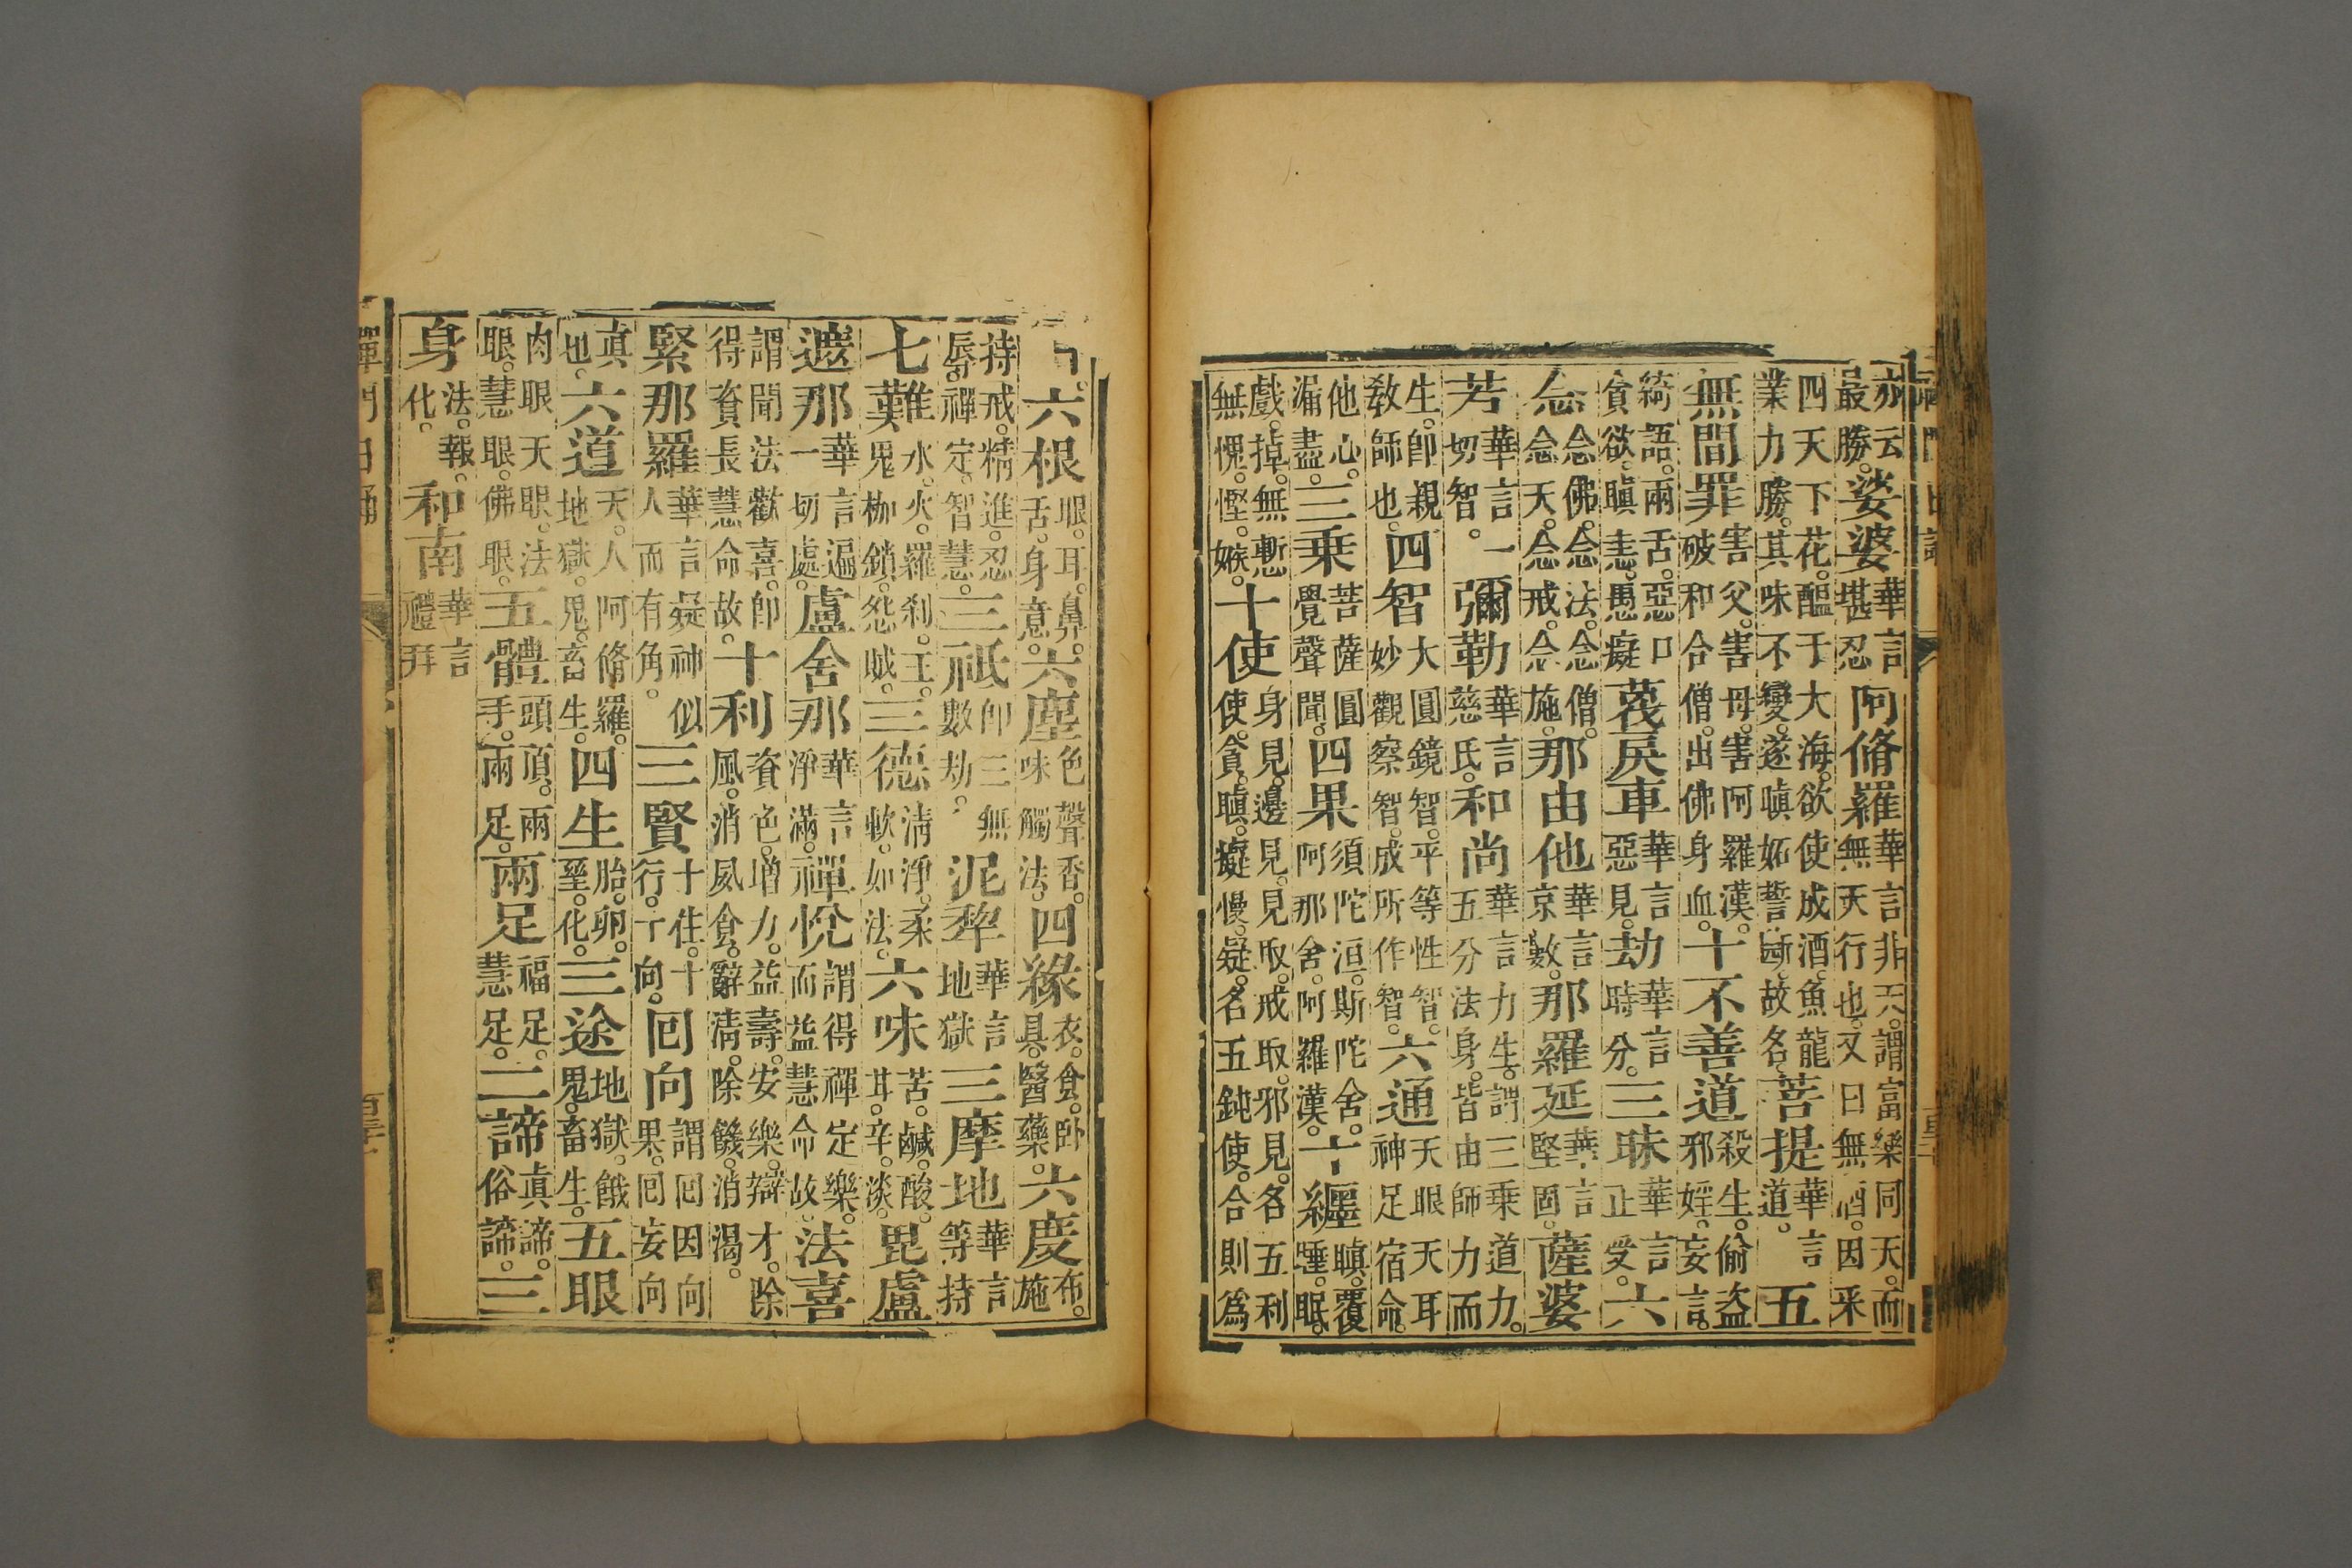 亦云最勝。娑婆華言堪忍阿脩羅華言非天。謂富樂同天。而無天行也。又曰無酒。因釆
四天下花。醞于大海。欲使成酒。魚龍業力勝。其味不變。遂嗔妬誓斷。故名。菩提華言道。五
無間罪害父。害母。害阿羅漢。破和合僧。出佛身血。十不善道殺生。偷盜邪婬。妄言。
綺語。兩舌。惡口貪欲。瞋恚。愚癡蔑戾車華言惡見。劫華言時分。三昧華言正受。六
念念佛。念法。念僧。念天。念戒。念施。那由他華言京數。那羅延華言堅固。薩婆
若華言一切智。彌勒華言慈氏。和尚華言力生。謂三乘道力。五分法身。皆由師力而
生。卽親教師也。四智大圓鏡智。平等性智。妙觀察智。成所作智。六通天眼天耳神足宿命。
他心。漏盡。三乘菩薩圓覺聲聞。四果須陀洹。斯陀含。阿那含。阿羅漢。十纏瞋。覆睡。眠。
戲。掉。無慙無愧。慳。嫉。十使身見。邊見。見取。戒取。邪見。各五利使。貪。瞋。癡慢。疑。名五鈍使。合則爲
六根眼。耳。鼻。舌。身意。六塵色聲香。味觸法。四緣衣。食。臥具。醫藥。六度布。施
持戒。精進。忍辱。禪定。智慧。三祇卽三無數劫。泥犂華言地獄三摩地華言等持
七難水。火。羅刹。王。鬼枷鎖。怨賊。三德淸淨。柔軟。如法。六味苦。鹹。酸。甘。辛。淡。毘盧
遮那華言遍一切處。盧舍那華言淨滿。禪悅謂得禪定樂。而益慧命故。法喜
謂聞法歡喜。卽得資長慧命故。十利資色。增力。益壽。安樂。辯才。除風。消夙食。辭淸。除饑。消渴。
緊那羅華言疑神似人而有角。三賢十住。十行。十向。回向謂回因向果。回妄向
眞也。六道天。人阿脩羅。地獄。鬼。畜生。四生胎。卵。溼。化。三途地獄。餓鬼。畜生。五眼
肉眼天眼。法眼。慧眼。佛眼。五體頭頂。兩手。兩足。兩足福足。慧足。二諦眞諦。俗諦。三
身法。報。化。和南華言禮拜
禪門日誦